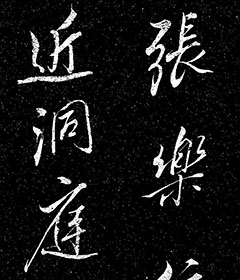 張樂
近洞庭